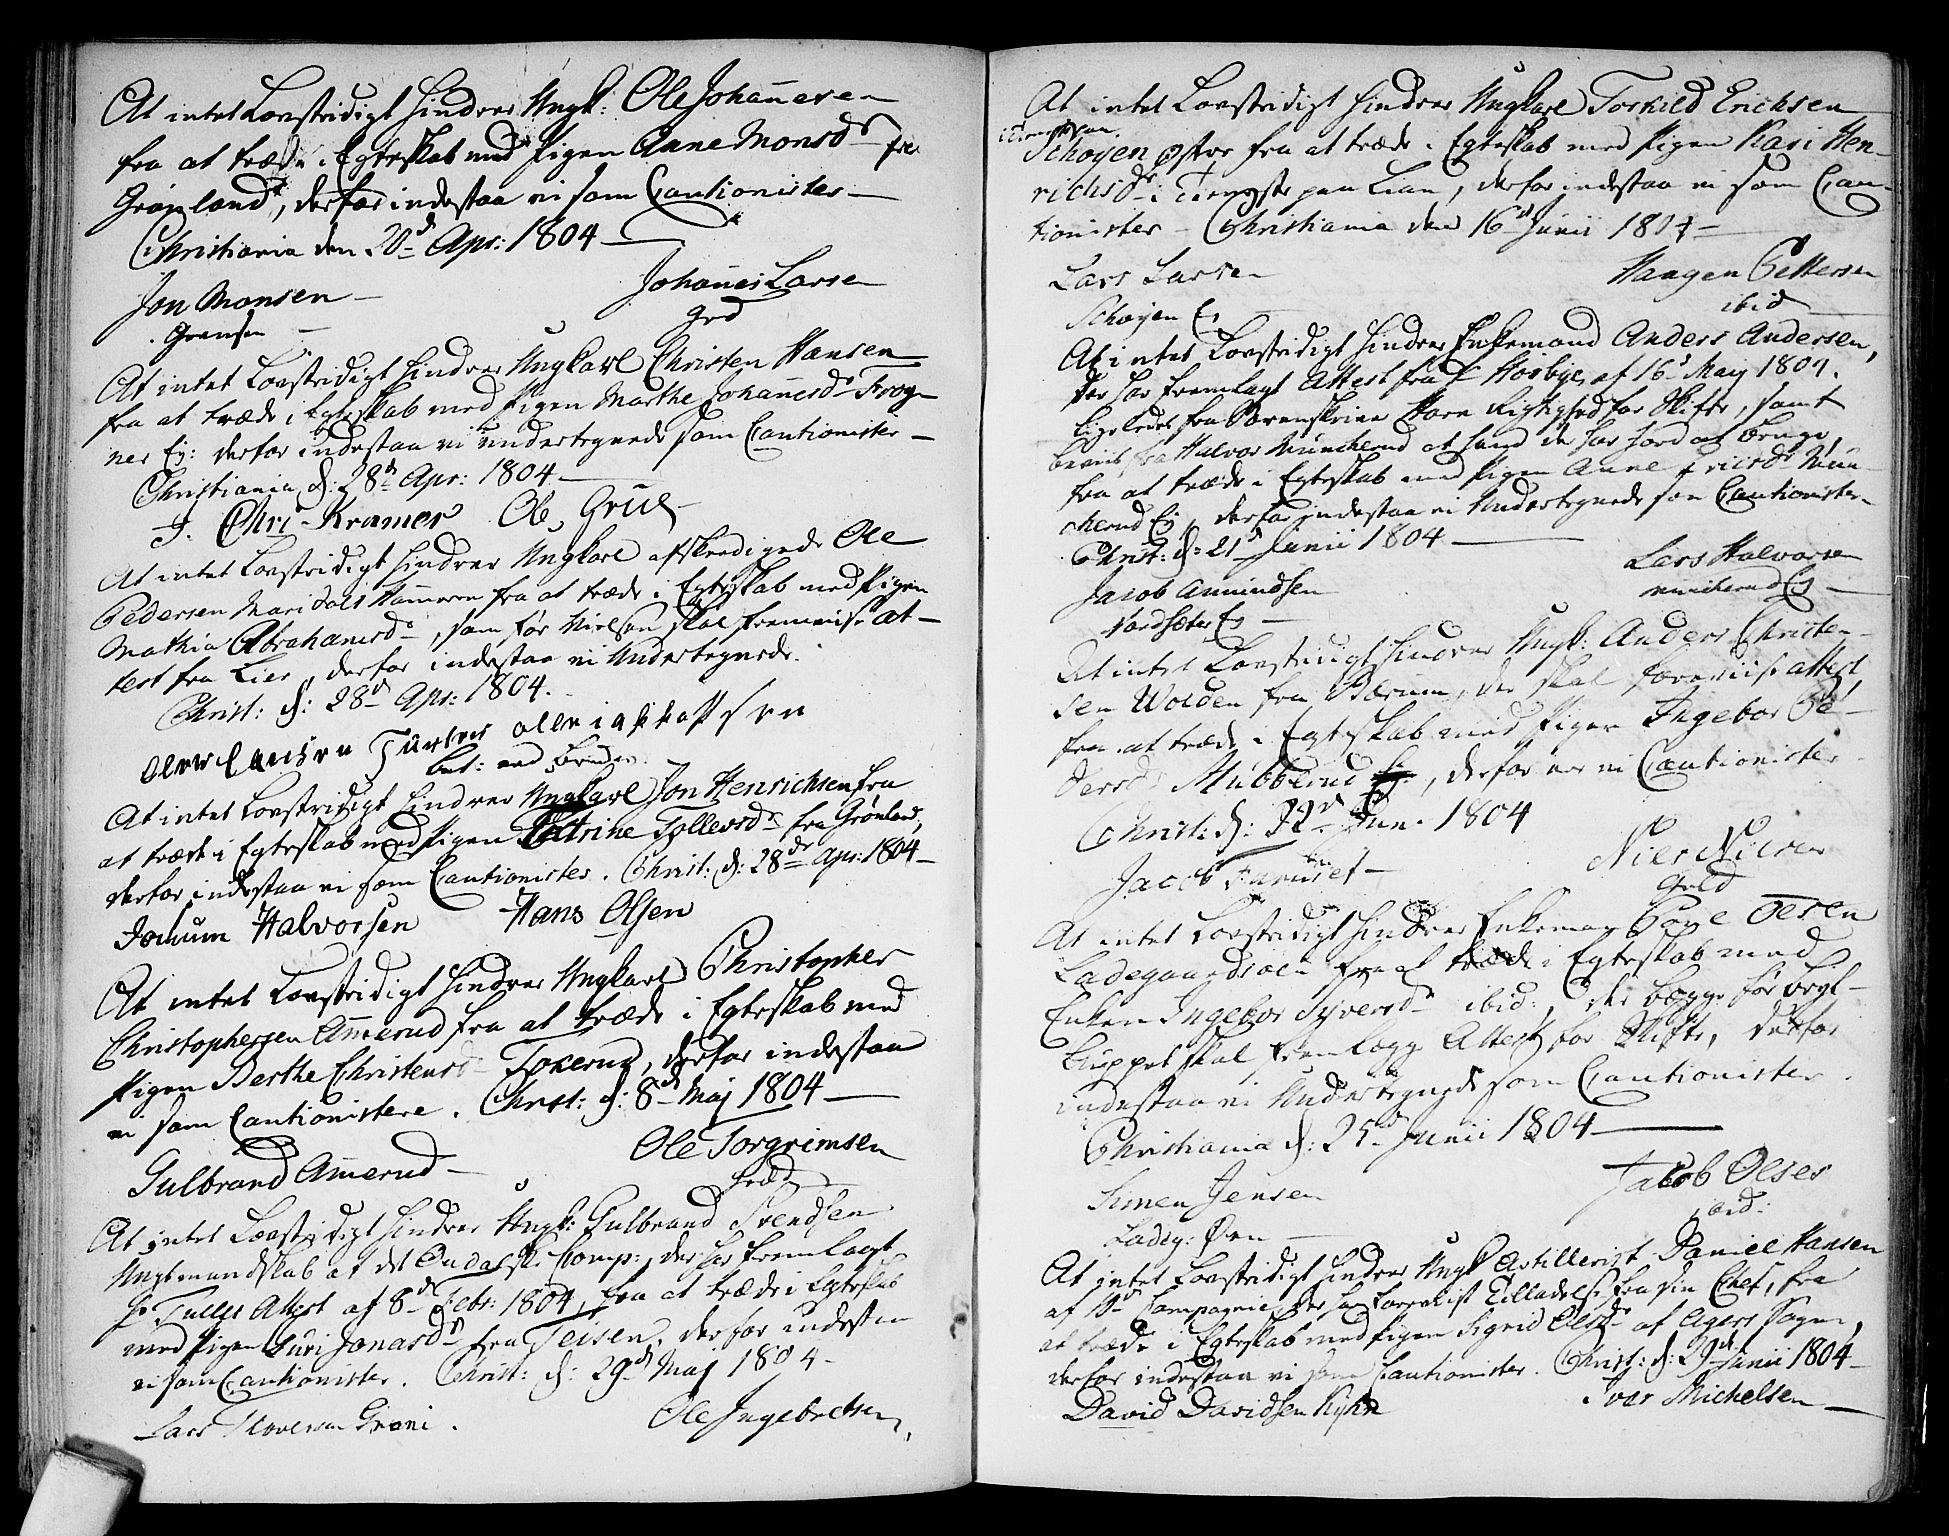 At intet Lovstridigt hindrer Ungk: Ole Johannesen
fra at træde i Egteskab med Pigen Anne Monsdr fra
Grønland, derfor indestaa vi som Cautionister
Christiania den 20d Apr: 1804
Jon Monsen Johannes Larsen
Grensen
At intet Lovstridigt hindrer Ungkarl Christen Hansen
fra at træde i Egteskab med Pigen Marthe Johannesdr Frog-
ner Ej: derfor indestaa vi undertegnede som Cautionister
Christiania d: 28d Apr: 1804
J. Chri. Kramer Ole Grue
At intet Lovstridigt hindrer Ungkarl afskedigede Ole
Pedersen Maridals Hammeren fra at træde i Egteskab med Pigen
Mathia Abrahamsdr, som før Vielsen skal fremvise At-
test fra Lier, derfor indestaa vi Undertegnede.
Christ: d: 28d Apr: 1804.
At intet Lovstridigt hindrer Ungkarl Jon Henrichsen fra
at træde i Egteskab med Pigen Cattrine Tollevsdr fra Grønland,
derfor indestaa vi som Cautionister. Christ: d: 28de Apr: 1804
Jochum Halvorsen Hans Olsen
At intet Lovstridigt hindrer Ungkarl Christopher
Christophersen Amerud fra at træde i Egteskab med
Pigen Berthe Christensdr Tokerud, derfor indestaa
vi som Cautionistere. Christ: d: 8d Maj 1804
Gulbrand Amerud Ole Torgrimsen
At intet Lovstridigt hindrer Ungk: Gulbrand Svendsen
Ungtmandskab af det Oudalske Comp: der har fremlagt
Hr Tullis Attest af 8d Febr: 1804, fra at træde i Egteskab
med Pigen Guri Jonasdr fra Teisen, derfor indestaa
vi som Cautionister. Christ: d: 29d Maj 1804
Lars Grøni. Ole Ingebretsen,
At intet Lovstridigt hindrer Ungkarl Torkild Erichsen
Schøyen østre fra at træde i Egteskab med Pigen Kari Hen-
richsdr i Tieneste paa Lian, derfor indestaa vi som Cau-
tionister - Christiania den 16d Junii 1804
Lars Larsen Haagen Pettersen
Schøyen Ej ibid
At intet Lovstridigt hindrer Enkemand Anders Andersen,
der har fremlagt Attest fra Hr Hørbye, af 16d Maj 1804.
ligeledes fra Sorenskriver Horn Rigtighed for Skifte, samt
beviis fra Halvor Muncherud at hand der har Jord at bruge,
fra at træde i Egteskab med Pigen Anne Iversdr Mun-
cherud Ej, derfor indestaa vi Undertegnede som Cautionister
Christ: d: 21d Junii 1804
Jacob Amundsen Lars Halvorsen
Nordsæter Ej Muncherud Ej
At intet Lovstridigt hindrer Ungk: Anders Christen-
sen Wolden fra Bærum, der skal foreviise Attest,
fra at træde i Egteskab med Pigen Ingebor Pe-
dersdr Mubberud Ej, derfor ere vi Cautionister
Christ: d: 22d Jun. 1804
Jacob Furuset Niels Nilsen
At intet Lovstridigt hindrer Enkeman Povel Olsen
Ladegaardsøen fra at træde i Egteskab med
Enken Ingebor Syversdr ibid:, der begge før Bryl-
luppet skal fremlægge Attest for Skifte, derfor
indestaa vi Undertegnede som Cautionister.
Christiania d: 25d Junii 1804
Simen Jensen Jacob Olsen
Ladeg: Øen ibid:
At intet Lovstridigt hindrer Ungk Artillerist Daniel Hansen
af Compagnie, der har foreviist Tilladelse fra sin Chef, fra
at træde i Egteskab med Pigen Sigrid Olsdr af Agers Sogn,
derfor indestaa vi som Cautionister. Christ: d: 29d Junii 1804
David Davidsen Kyhn Iver Michelsen